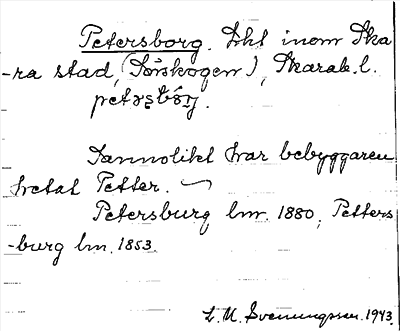 Petersborg. Lht inom Ska
-ra stad, (Sörskogen), Skarab. l.
Sannolikt har bebyggaren
hetat Petter.
Petersburg lm. 1880, Petters
-burg lm. 1853.
L. M. Svenungsson. 1943.